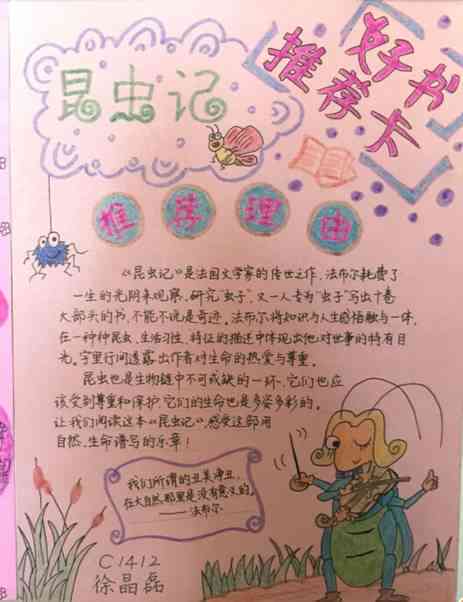 昆虫记
好书
推荐卡
推荐理由
《昆虫记》是法国文学家的传世之作,法布尔耗费了
一生的光阴来观察、研究“虫子”,又一人专为“虫子”写出十卷
大部头的书,不能不说是奇迹。法布尔将知识与人生感悟融与一体,
在一种种昆虫、生活习性、特征的描述中体现出他对世事的特有目
光。字里行间透露出作者对生命的热爱与尊重。
昆虫也是生物链中不可或缺的一环、它们也应
该受到尊重和保护,它们的生命也是多姿多彩的。
让我们阅读这本《昆虫记》,感受这部用
自然、生命谱写的乐章!
我们所谓的丑美净丑,
在大自然那里是没有意义的。
——法布尔
C1412
徐晶磊